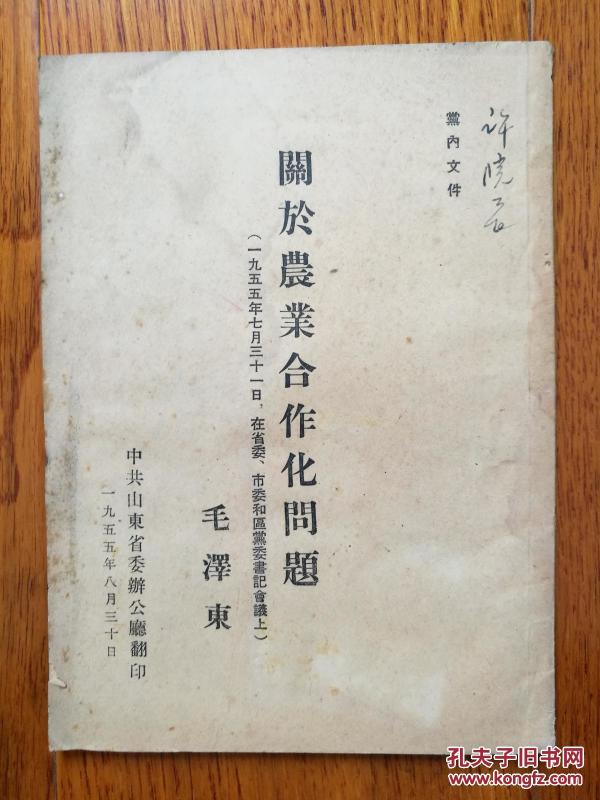 許曉
黨內文件
關於農業合作化問題
(一九五五年七月三十一日，在省委、市委和區黨委書記會議上)
毛澤東
中共山東省委辦公廳翻印
一九五五年八月三十日
孔夫子旧书网
www.kongfz.com